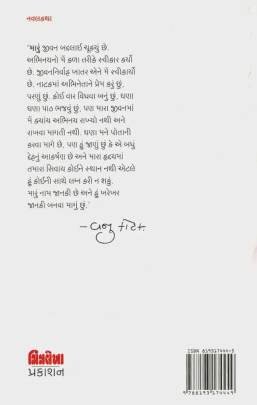 નવલકથા
'મારું જીવન બદલાઈ ચૂક્યું છે.
અભિનયનો મેં કળા તરીકે સ્વીકાર કર્યો
છે. જીવનનિર્વાહ ખાતર એને મેં સ્વીકાર્યો
છે. નાટકમાં અભિનેતાને પ્રેમ કરું છું.
પરણું છું. કોઈ વાર વિધવા બનું છું. ઘણા
ઘણા પાઠ ભજવું છું. પણ મારા જીવનમાં
મેં ક્યાંય અભિનય રાખ્યો નથી અને
રાખવા માગતી નથી. ઘણા મને પોતાની
કરવા માગે છે. પણ હું જાણું છું કે એ બધું
દેહનું આકર્ષણ છે અને મારા હૃદયમાં
તમારા સિવાય કોઈને સ્થાન નથી એટલે
હું કોઈની સાથે લગ્ન કરી ન શકું.
મારું નામ જાનકી છે અને હું ખરેખર
જાનકી બનવા માગું છું.'
ISBN 819317444-9
9 788193 174449
ચિત્રલેખા
પ્રકાશન